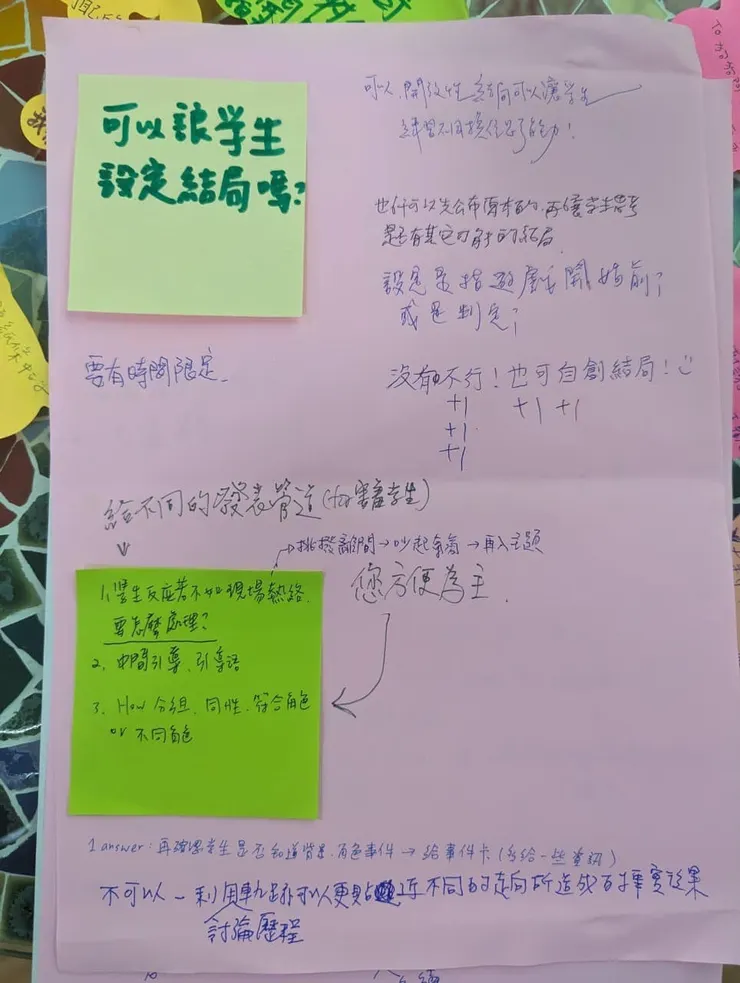 可以讓學生
設定結局嗎?
可以,開放性結局可以讓學生
練習不同換位思考能力!
也許可以先公布原本的,再讓學生思考
是否有其它可能的結局
設定是指遊戲開始前?
或是判定?
要有時間限定
沒有不行!也可自創結局!
+1 +1 +1
+1
+1
給不同的發表管道(for害羞學生)
挑撥離間→吵起氣氛→再入主題
您方便為主.
1. 學生反應若不如現場熱絡,
要怎麼處理?
2. 中間引導、引導語
3. How 分組、同性、符合角色
or 不同角色
1 answer:再確認學生是否知道背景、角色事件→給事件卡(多給一些資訊)
不可以—利用軌跡可以更貼近不同的走向所造成的事實效果
討論歷程